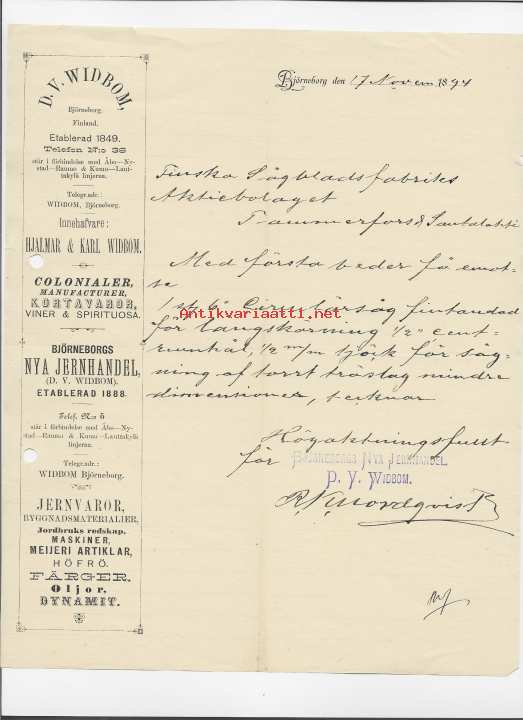 D. V. WIDBOM,
Björneborg.
Finland.
Etablerad 1849.
Telefon N:o 38
står i förbindelse med Åbo—Ny-
stad—Raumo & Kumo—Laut-
takylä linjerna.
Telegr.adr.:
WIDBOM, Björneborg.
Innehafvare:
HJALMAR & KARL WIDBOM.
COLONIALER,
MANUFACTURER,
KORTAVAROR,
VINER & SPIRITUOSA.
BJÖRNEBORGS
NYA JERNHANDEL,
(D. V. WIDBOM).
ETABLERAD 1888.
Telef. N:o 5
står i förbindelse med Åbo—Ny-
stad—Raumo & Kumo—Lauttakylä
linjerna.
Telegr.adr.:
WIDBOM Björneborg.
JERNVAROR,
BYGGNADSMATERIALIER,
Jordbruks redskap.
MASKINER,
MEIJERI ARTIKLAR,
HÖFRÖ.
FÄRGER.
Oljor.
DYNAMIT.
Björneborg den 17 Novem 1894
Finska Sågbladsfabriks
Aktiebolaget
Tammerfors & Santalahti
Med första beder få emot-
se
1 st 6" Cirkelsåg fintandad
för långskärning 1/2" cent-
rumhål, 1/2 m/m tjock för såg-
ning af torrt träslag mindre
dimensioner, tecknar
Högaktningsfullt
för BJÖRNEBORGS NYA JERNHANDEL.
D. V. WIDBOM.
Nordqvist
Antikvariaatti.net